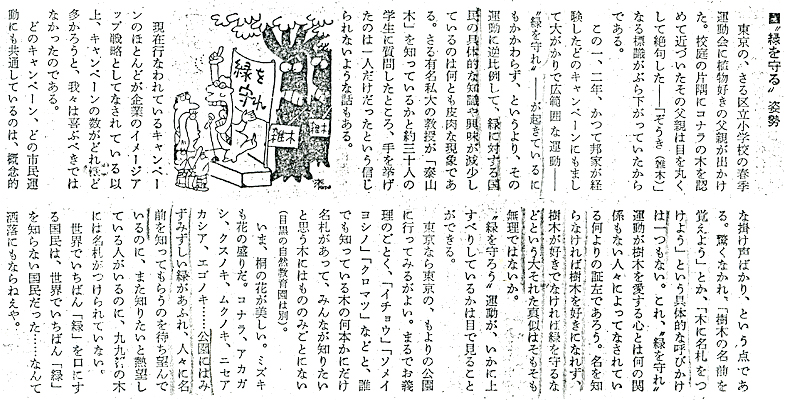 “緑を守る”姿勢
東京の、さる区立小学校の春季
運動会に植物好きの父親が出かけ
た。校庭の片隅にコナラの木を認
めて近づいたその父親は目を丸く
して絶句した――「ぞうき(雑木)」
なる標識がぶら下がっていたから
である。
この一、二年、かつて邦家が経
験したどのキャンペーンにもまし
て大がかりで広範囲な運動――
“緑を守れ”――が起きているに
もかかわらず、というより、その
運動に逆比例して、緑に対する国
民の具体的な知識や興味が減少し
ているのは何とも皮肉な現象であ
る。さる有名私大の教授が「泰山
木」を知っているかと約三十人の
学生に質問したところ、手を挙げ
たのは一人だけだったという信じ
られないような話もある。
緑を守れ
雑木
雑木
現在行なわれているキャンペー
ンのほとんどが企業のイメージア
ップ戦略としてなされている以
上、キャンペーンの数がどれほど
多かろうと、我々は喜ぶべきでは
なかったのである。
どのキャンペーン、どの市民運
動にも共通しているのは、概念的
な掛け声ばかり、という点であ
る。驚くなかれ、「樹木の名前を
覚えよう」とか、「木に名札をつ
けよう」という具体的な呼びかけ
は一つもない。これ、“緑を守れ”
運動が樹木を愛する心とは何の関
係もない人々によってなされてい
る何よりの証左であろう。名を知
らなければ樹木を好きになれず、
樹木が好きでなければ緑を守るな
どという大それた真似はそもそも
無理ではないか。
“緑を守ろう”運動が、いかに上
すべりしているかは目で見ること
ができる。
東京なら東京の、もよりの公園
に行ってみるがよい。まるでお義
理のごとく、「イチョウ」「ソメイ
ヨシノ」「クロマツ」などと、誰
でも知っている木の何本かにだけ
名札があって、みんなが知りたい
と思う木にはもののみごとにない
(目黒の自然教育園は別)。
いま、桐の花が美しい。ミズキ
も花の盛りだ。コナラ、アカガ
シ、クスノキ、ムクノキ、ニセア
カシア、エゴノキ……公園にはみ
ずみずしい緑があふれ、人々に名
前を知ってもらうのを待ち望んで
いるのに、また知りたいと熱望し
ている人がいるのに、九九％の木
には名札がつけられていない。
世界でいちばん「緑」を口にす
る国民は、世界でいちばん「緑」
を知らない国民だった……なんて
洒落にもならねえや。